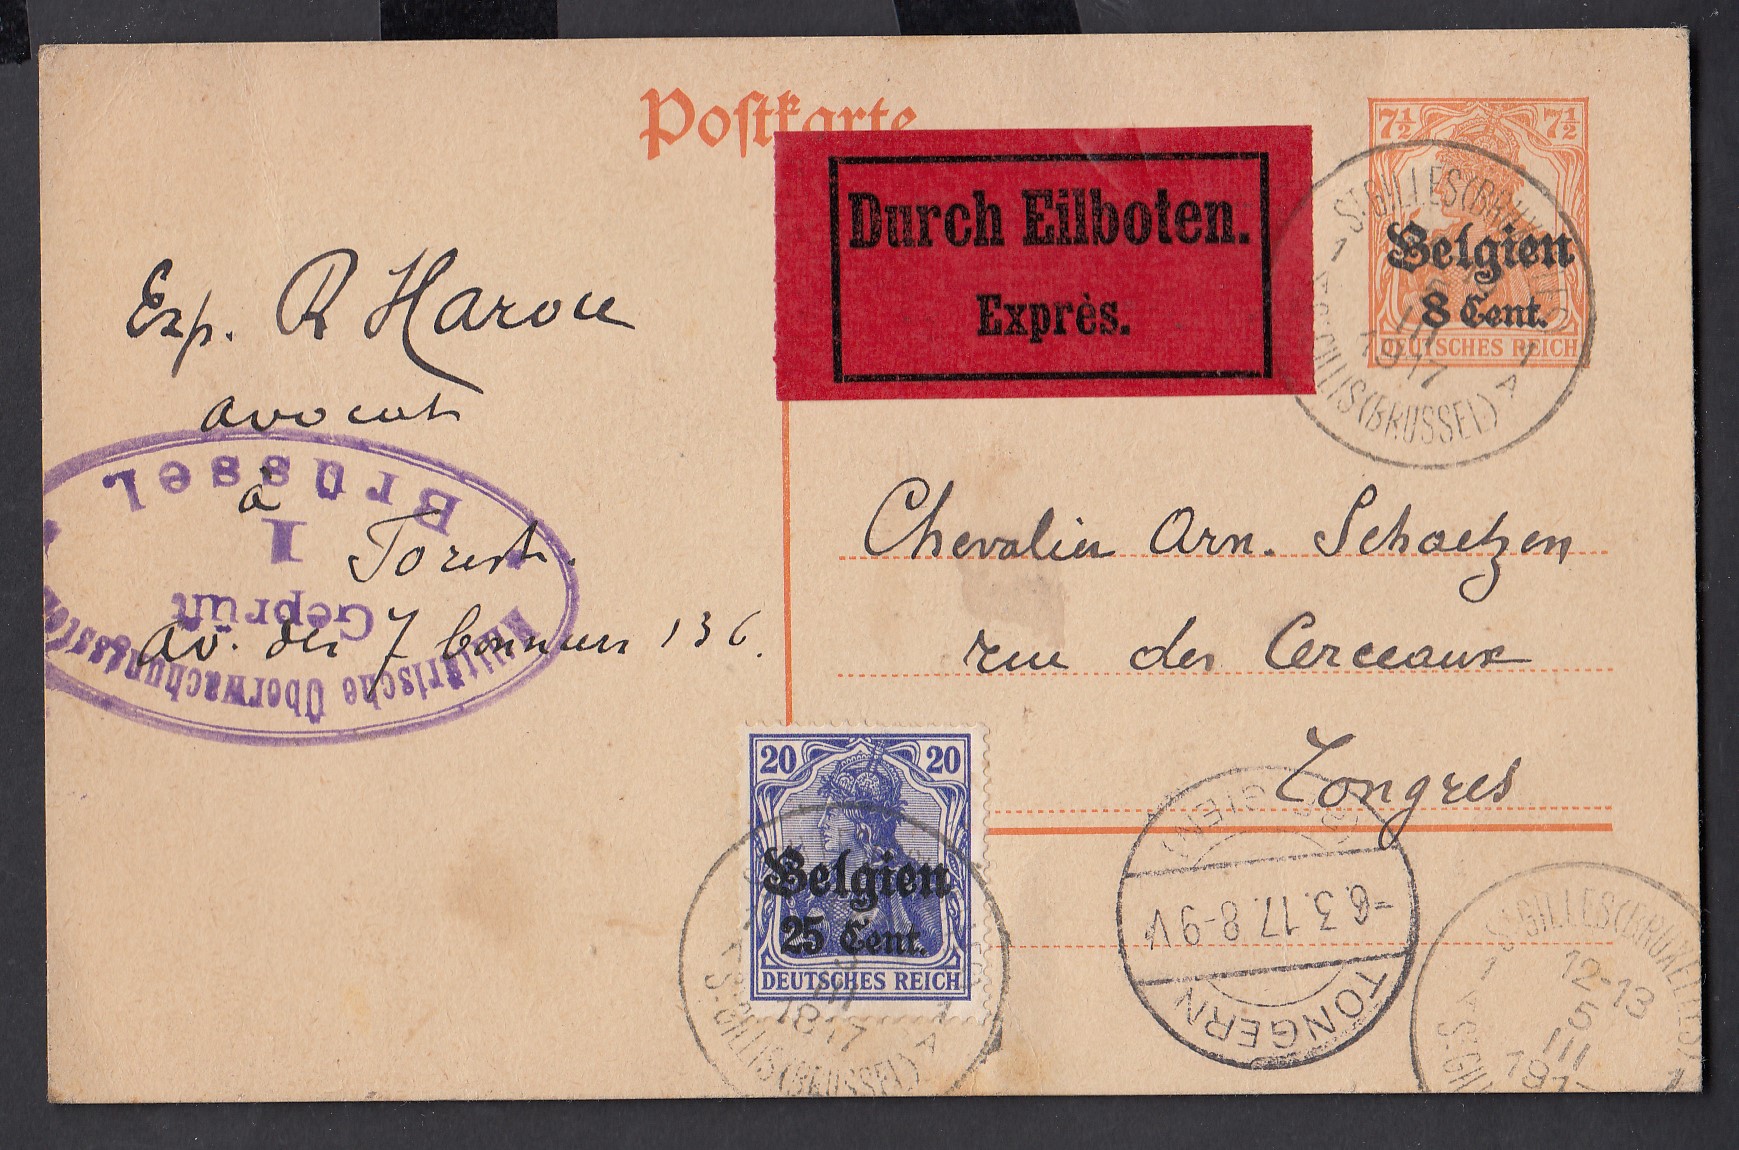 Postkarte
Durch Eilboten.
Exprès.
7½ 7½
Belgien
8 Cent.
DEUTSCHES REICH
ST GILLES (BRUX
1 1
III
1917
A A
ST GILLIS (BRUSSEL)
Exp. R Haroie
avocat
à
Forest.
av. des 7 bonniers 136.
Militärische Überwachungsstelle
Geprüft
I
Brüssel
Chevalier Arn. Schaetzen
rue des Cerceaux
Tongres
20 20
Belgien
25 Cent.
DEUTSCHES REICH
1
III
1917
A A
ST GILLIS (BRUSSEL)
TONGERN
-6.3.17. 8-9 V
(BELGIEN)
ST GILLES (BRUXELLES)
1 12-13 1
5
III
191
A
ST GI